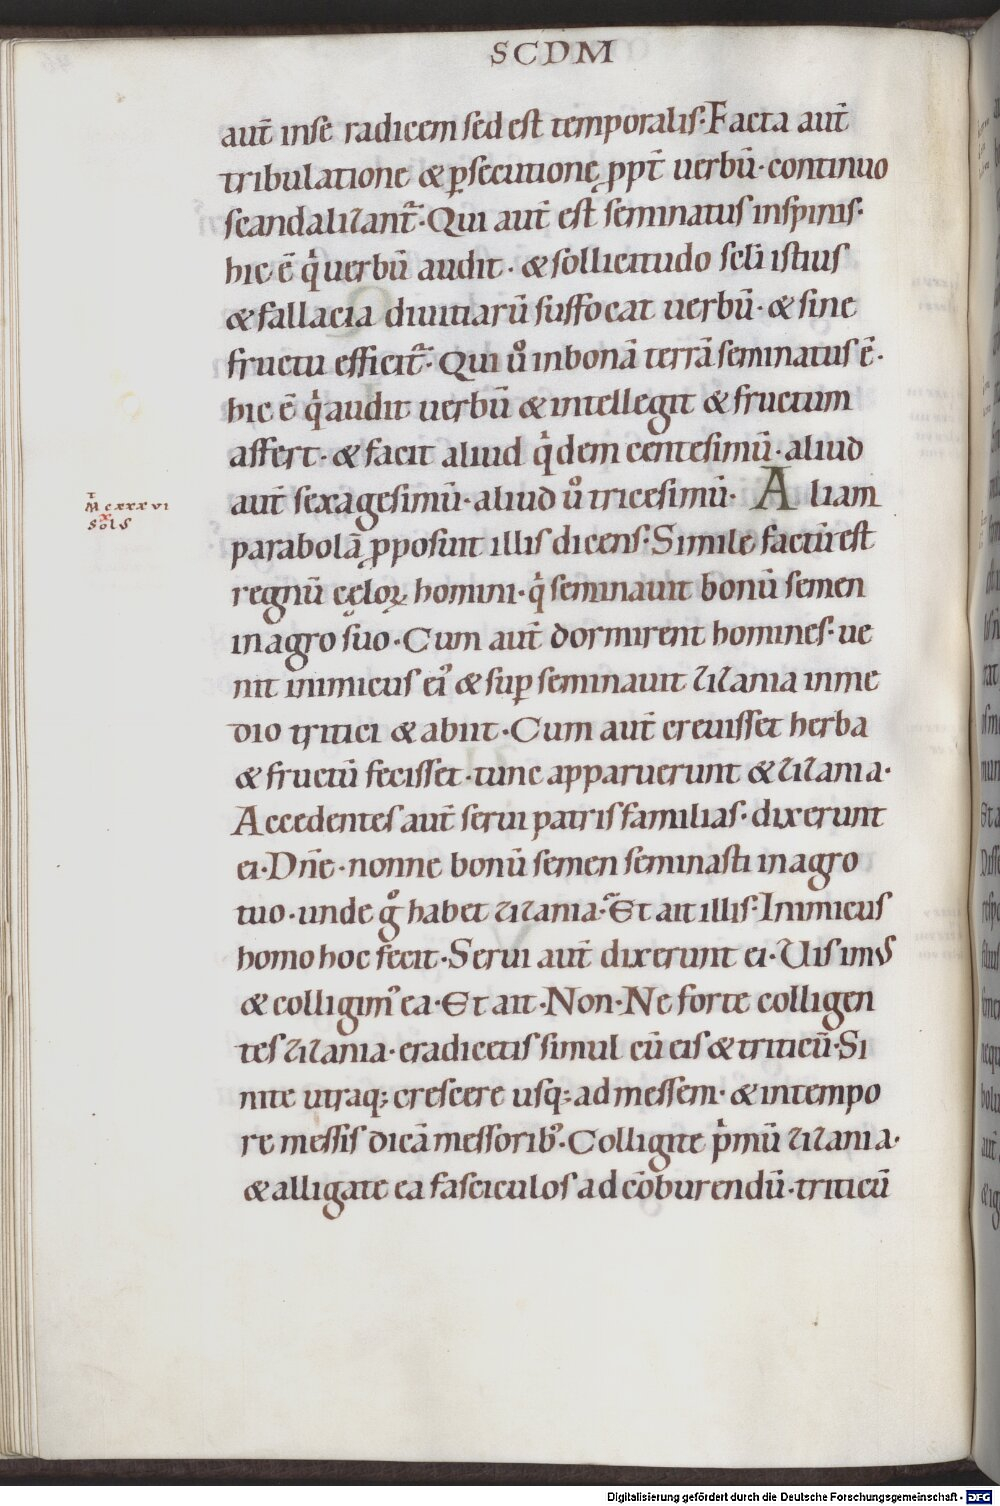 SCDM
aut̄ inse radicem sed est temporalis· Facta aut̄
tribulatione & ꝑsecutionę ꝓpt̄ uerbū· continuo
scandalizant᷑· Qui aut̄ est seminatus inspinis·
hic ē qͥ uerbū audit· & sollicitudo sclī istius
& fallacia diuitiarū suffocat uerbū· & sine
fructu efficit᷑· Qui uͦ inbonā terrā seminatus ē·
hic ē qͥ audit uerbū & intellegit & fructum
affert· & facit aliud qͥdem centesimū· aliud
aut̄ sexagesimū· aliud uͦ tricesimū· Aliam
T
M cxxxvi
x
Sols
parabolā ꝓposuit illis dicens· Simile factū est
regnū cęloꝝ homini· qͥ seminauit bonū semen
inagro suo· Cum aut̄ dormirent homines· ue
nit inimicus ei᾿ & suꝑ seminauit zizania inme
dio tritici & abiit· Cum aut̄ creuisset herba
& fructū fecisset· tunc apparuerunt & zizania·
Accedentes aut̄ serui patris familias· dixerunt
ei· Dn̄e· nonne bonū semen seminasti inagro
tuo· unde gͦ habet zizania· Et ait illis· Inimicus
homo hoc fecit· Serui aut̄ dixerunt ei· Uis imus
& colligim᾿ ea· Et ait· Non· Ne forte colligen
tes zizania· eradicetis simul cū eis & triticū· Si
nite utraq; crescere usq; ad messem· & intempo
re messis dicā messorib᾿· Colligite pͥmū zizania·
& alligate ea fasciculos ad cōburendū· triticū
Digitalisierung gefördert durch die Deutsche Forschungsgemeinschaft - DFG